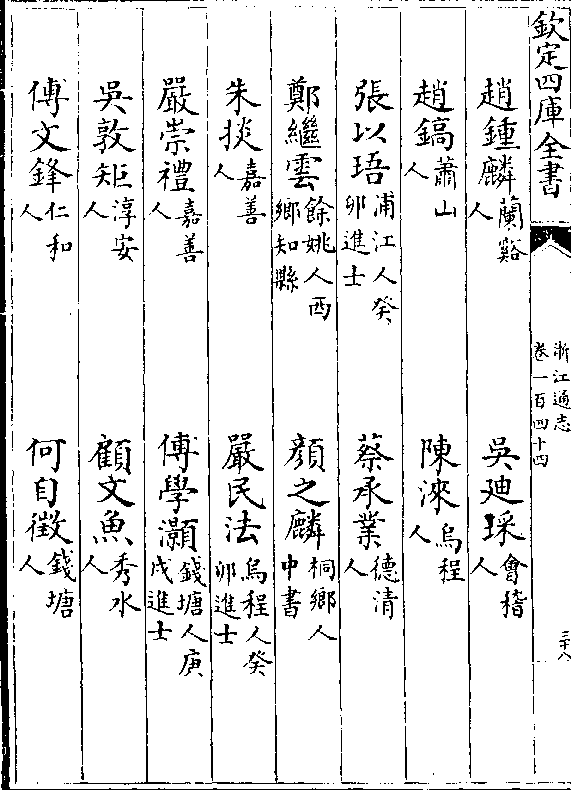 欽定四庫全書
浙江通志
卷一百四十四
三十八
趙鍾麟蘭谿人 吳廸琛會稽人
趙鎬蕭山人 陳淶烏程人
張以珸浦江人癸卯進士 蔡承業德清人
鄭繼雲餘姚人西鄉知縣 顏之麟桐鄉人中書
朱掞嘉善人 嚴民法烏程人癸卯進士
嚴崇禮嘉善人 傅學灝錢塘人庚戌進士
吳敦矩淳安人 顧文魚秀水人
傅文鋒仁和人 何自徵錢塘人